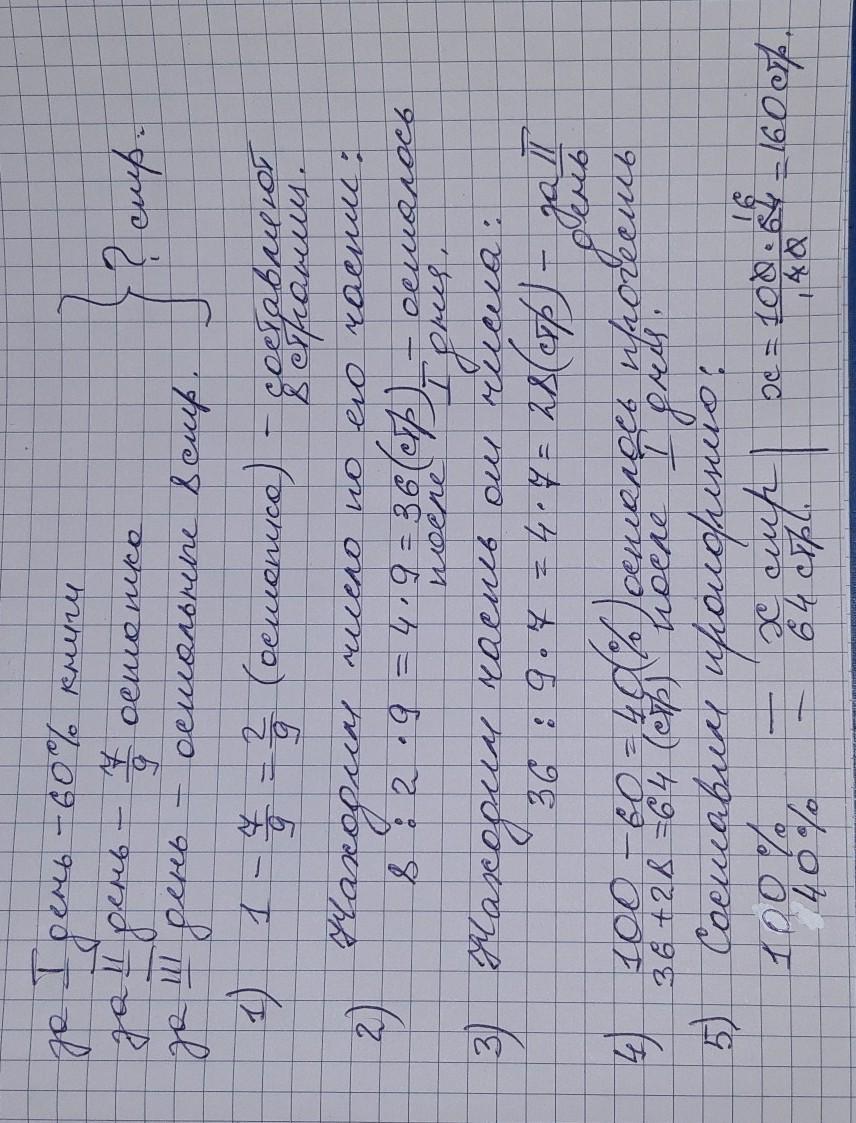 за I день – 60% книги
за II день – 7/9 остатка
за III день – остальные 8 стр. } ? стр.
1) 1 – 7/9 = 2/9 (остатка) – составляют
8 страниц.
2) Находим число по его части:
8 : 2 · 9 = 4 · 9 = 36 (стр) – осталось
после I дня.
3) Находим часть от числа:
36 : 9 · 7 = 4 · 7 = 28 (стр) – за II
день
4) 100 – 60 = 40 (%) осталось прочесть
36 + 28 = 64 (стр) после I дня.
5) Составим пропорцию:
100% – x стр
40% – 64 стр. | x = 100 · 64 / 40 = 160 стр.
16
1